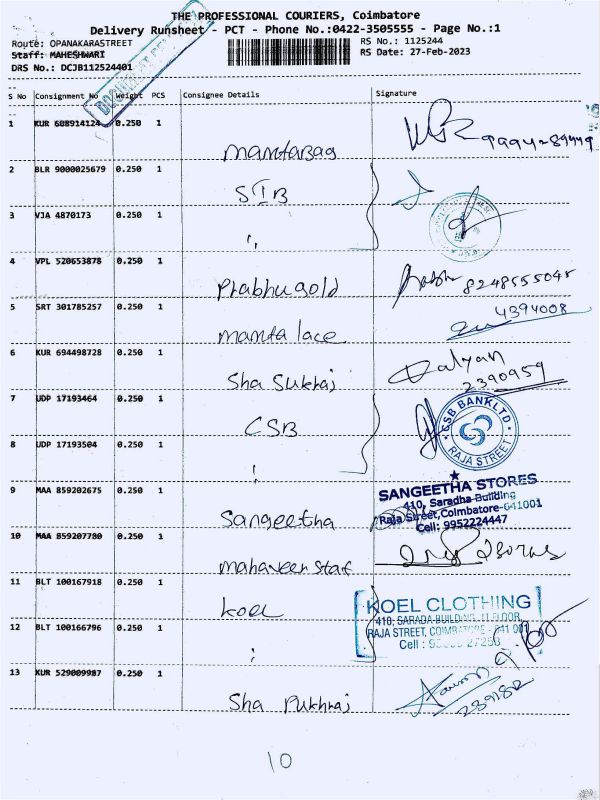 THE PROFESSIONAL COURIERS, Coimbatore
Delivery Runsheet - PCT - Phone No.:0422-3505555 - Page No.:1
Route: OPANAKARASTREET RS No.: 1125244
Staff: MAHESHWARI RS Date: 27-Feb-2023
DRS No.: DCJB112524401
S No Consignment No Weight PCS Consignee Details Signature
1 KUR 608914124 0.250 1
mamtaBag
2 BLR 9000025679 0.250 1
SIB
3 VJA 4870173 0.250 1
"
4 VPL 520653878 0.250 1
Prabhu gold 8248555045
5 SRT 301785257 0.250 1 4394008
mamta lace
6 KUR 694498728 0.250 1 Kalyan
Sha Sukhraj 2390959
7 UDP 17193464 0.250 1
CSB
CSB BANK LTD
RAJA STREET
8 UDP 17193504 0.250 1
"
9 MAA 859202675 0.250 1
Sangeetha
SANGEETHA STORES
410, Saradha Building
Raja Street, Coimbatore-641001
Cell: 9952224447
10 MAA 859207780 0.250 1
mahaveer Star
11 BLT 100167918 0.250 1
Koel
KOEL CLOTHING
410, SARADA BUILDING, II FLOOR,
RAJA STREET, COIMBATORE - 641 001
Cell :
12 BLT 100166796 0.250 1
"
13 KUR 529009987 0.250 1
Sha Pukhraj
10